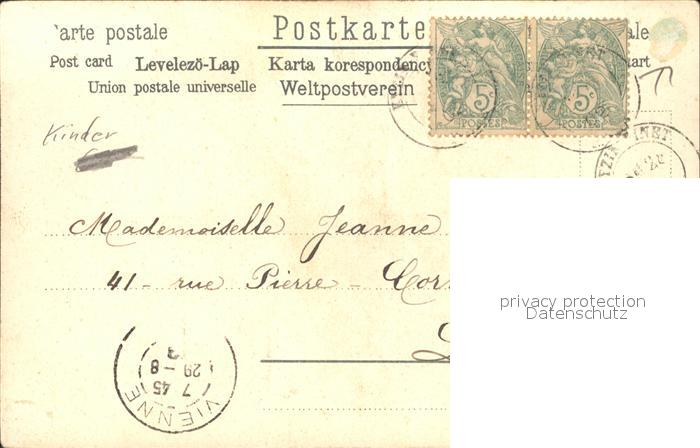 arte postale
Postkarte
ale
Post card
Levelezö-Lap
Karta korespondency
art
Union postale universelle
Weltpostverein
5 POSTES
5 POSTES
Kinder
Mademoiselle Jeanne
41 - rue Pierre - Cor
privacy protection
Datenschutz
VIENNE
7 45
29 - 8